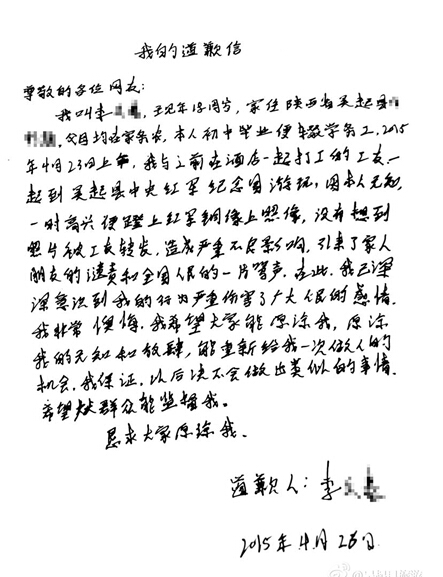 我的道歉信
尊敬的各位网友：
我叫李，现年18周岁，家住陕西省吴起县
，父母均在家务农，本人初中毕业便辍学务工，2015
年4月23日上午，我与之前在酒店一起打工的工友一
起到吴起县中央红军纪念园游玩，因本人无知，
一时高兴便蹬上红军铜像上照像，没有想到
照片被工友转发，造成严重不良影响，引来了家人
朋友的谴责和全国人民的一片骂声，在此，我已深
深意识到我的行为严重伤害了广大人民的感情。
我非常懊悔，我希望大家能原谅我，原谅
我的无知和放肆，能重新给我一次做人的
机会，我保证，以后决不会做出类似的事情。
希望群众能监督我。
恳求大家原谅我。
道歉人：李
2015年4月26日